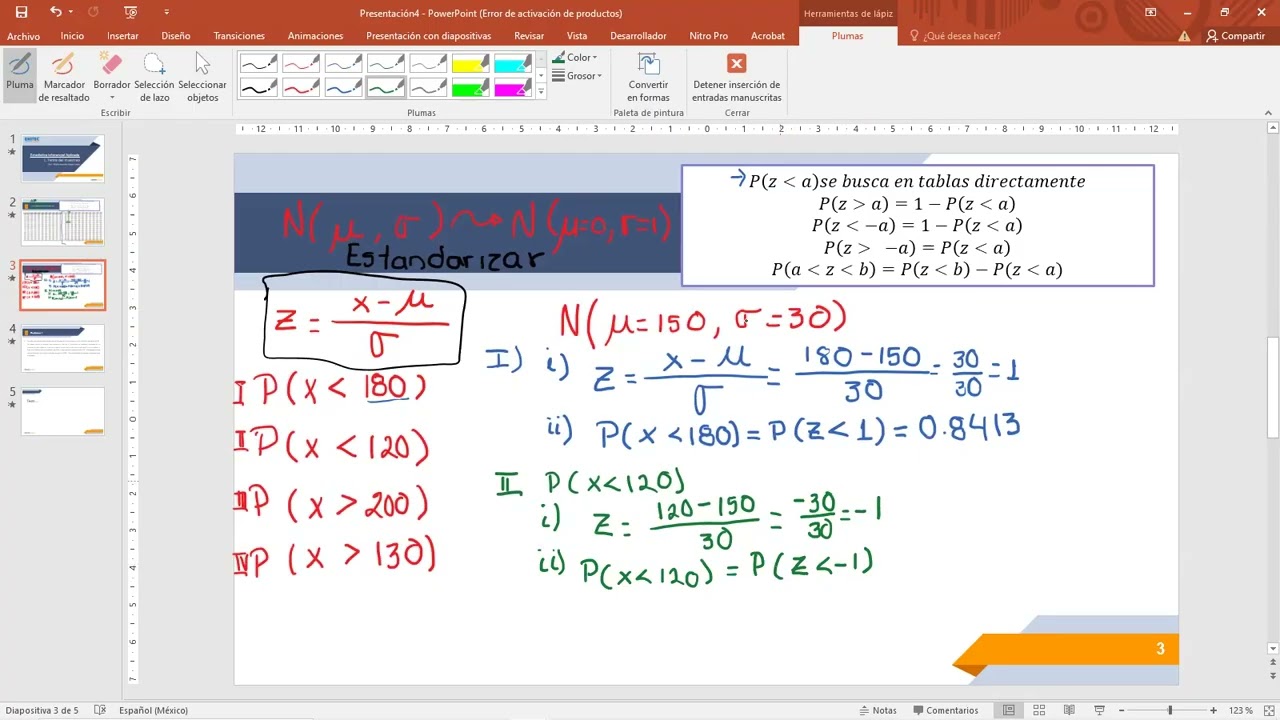 Presentación4 - PowerPoint (Error de activación de productos)
Herramientas de lápiz
Archivo Inicio Insertar Diseño Transiciones Animaciones Presentación con diapositivas Revisar Vista Desarrollador Nitro Pro Acrobat Plumas ¿Qué desea hacer? Compartir
Pluma
Marcador de resaltado
Borrador
Selección de lazo
Seleccionar objetos
Color
Grosor
Convertir en formas
Detener inserción de entradas manuscritas
Escribir
Plumas
Paleta de pintura
Cerrar
12 11 10 9 8 7 6 5 4 3 2 1 0 1 2 3 4 5 6 7 8 9 10 11 12
1
2
3
4
5
→P(z < a)se busca en tablas directamente
P(z > a) = 1 − P(z < a)
P(z < −a) = 1 − P(z < a)
P(z > −a) = P(z < a)
P(a < z < b) = P(z < b) − P(z < a)
N(μ, σ) ⤳ N(μ=0, σ=1)
Estandarizar
z = (x − μ)/σ
I P(x < 180)
I P(x < 120)
III P(x > 200)
IV P(x > 130)
N(μ=150, σ=30)
I) i) z = (x − μ)/σ = (180 − 150)/30 = 30/30 = 1
ii) P(x < 180) = P(z < 1) = 0.8413
II P(x < 120)
i) z = (120 − 150)/30 = −30/30 = −1
ii) P(x < 120) = P(z < −1)
3
Diapositiva 3 de 5 Español (México) Notas Comentarios 123 %